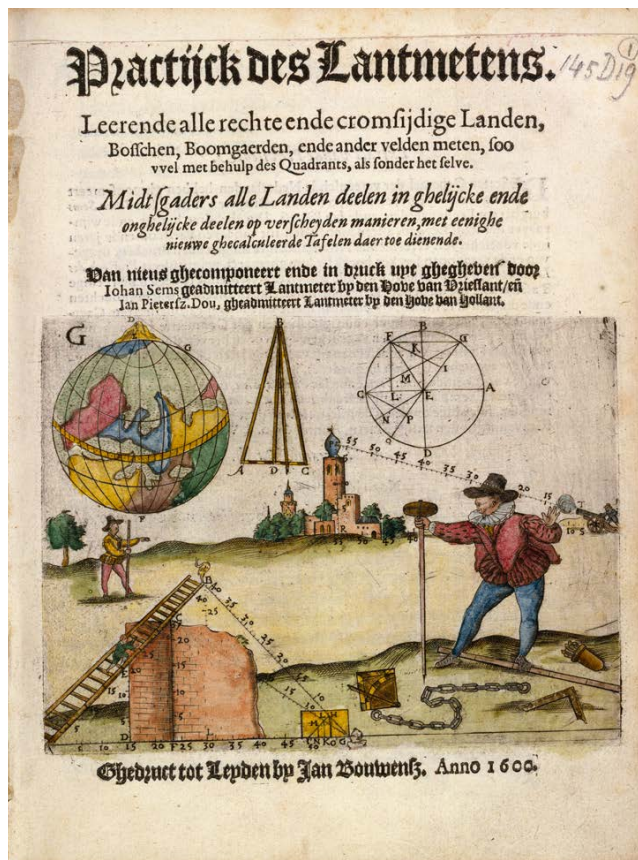 1
145 D 19
Practijck des Lantmetens.
Leerende alle rechte ende cromsijdige Landen,
Bosschen, Boomgaerden, ende ander velden meten, soo
vvel met behulp des Quadrants, als sonder het selve.
Midtsgaders alle Landen deelen in ghelijcke ende
onghelijcke deelen op verscheyden manieren, met eenighe
nieuwe ghecalculeerde Tafelen daer toe dienende.
Van nieus ghecomponeert ende in druck uyt ghegheven door
Iohan Sems geadmitteert Lantmeter by den Hove van Vrieslant/eñ
Jan Pietersz. Dou, gheadmitteert Lantmeter by den Hove van Hollant.
G
D
G
F
B
A D C
B
F G
K
I
M
C L E A
N P
Q
D
55 50 45 40 35 30 20 15
10 5
R
40 35 30 25 20 15 10
25
20 15 10 5
D 10 15 20 F 25 30 35 40
Ghedruct tot Leyden by Jan Bouwensz. Anno 1600.